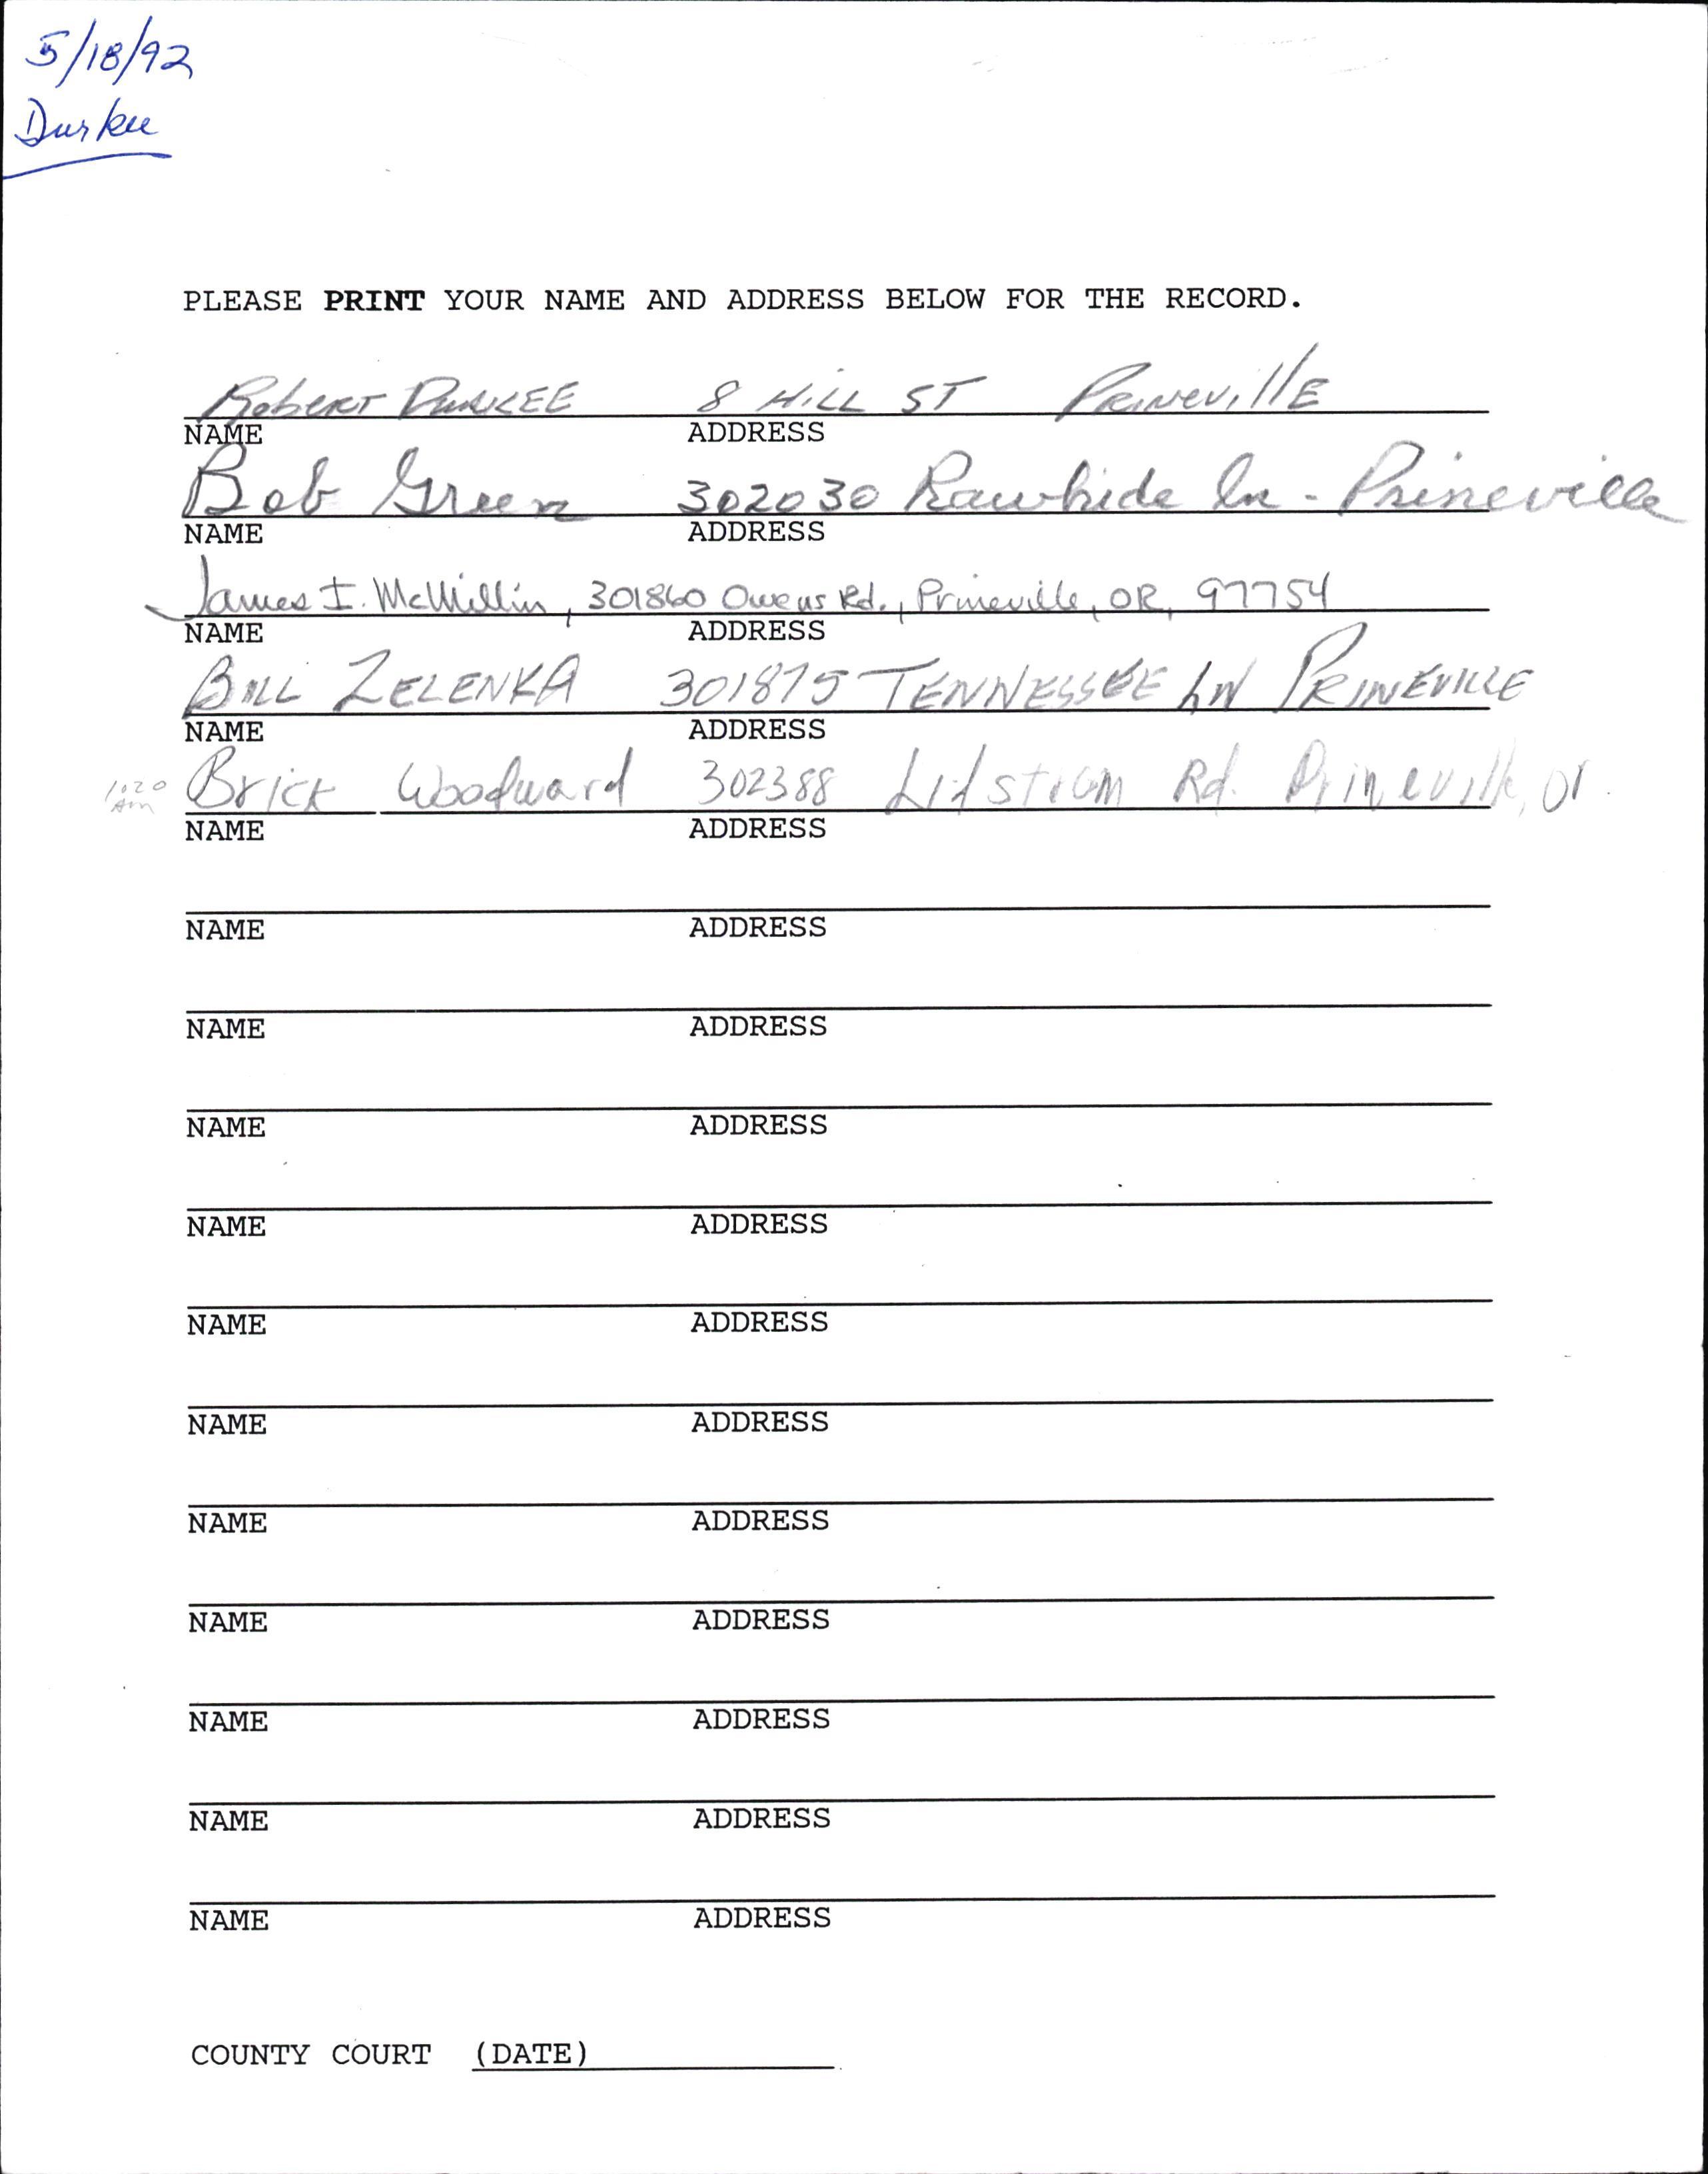 5/18/92
Durkee
PLEASE PRINT YOUR NAME AND ADDRESS BELOW FOR THE RECORD.
Robert DURKEE 8 HILL ST PRINEVIllE
NAME ADDRESS
Bob Green 302030 Rawhide Ln - Prineville
NAME ADDRESS
James I. McMillin, 301860 Owens Rd., Prineville, OR, 97754
NAME ADDRESS
BILL ZELENKA 301875 TENNESSEE LN PRINEVILLE
NAME ADDRESS
10:20 Brick Woodward 302388 Lidstrom Rd. Prineville, Or.
Am
NAME ADDRESS
NAME ADDRESS
NAME ADDRESS
NAME ADDRESS
NAME ADDRESS
NAME ADDRESS
NAME ADDRESS
NAME ADDRESS
NAME ADDRESS
NAME ADDRESS
NAME ADDRESS
NAME ADDRESS
COUNTY COURT (DATE)